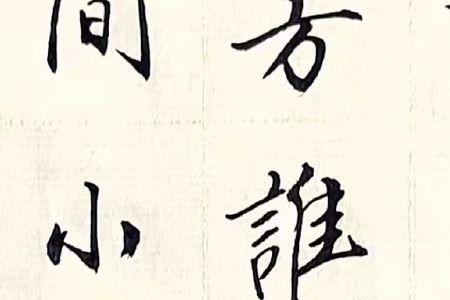 方誰
間小